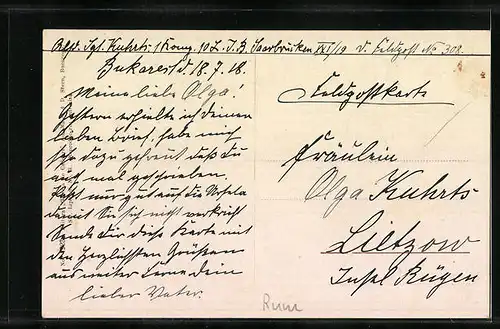 Abs. Sgt. Kuhrts, 1 Komp. 10 L. J. B. Saarbrücken XXI/19 D. Feldpost No 308.
Bukarest d. 18.7.18.
Meine liebe Olga!
Gestern erhielte ich deinen
lieben Brief, habe mich
sehr dazu gefreut daß du
auch mal geschrieben.
Paßt nur gut auf die Ursela
damit Sie sich nicht verkricht
Sende dir diese Karte mit
den Herzlichsten Grüßen
aus weiter Ferne dein
lieber Vater.
Feldpostkarte
Fräulein
Olga Kuhrts
Lietzow
Insel Rügen
Rum